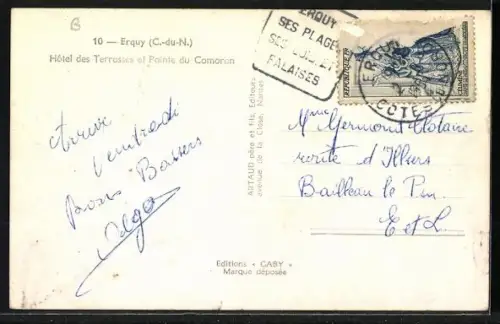 B
10 — Erquy (C.-du-N.)
Hôtel des Terrasses et Pointe du Comoran
ERQUY
SES PLAGES
SES
FALAISES
ERQUY
COTES
Arrive
Vendredi
Bons Baisers
Olga
ARTAUD père et fils, Editeurs
avenue de la Close, Nantes
Mme Germont Notaire
route d'Illiers
Bailleau le Pin
E et L.
Editions « GABY »
Marque déposée